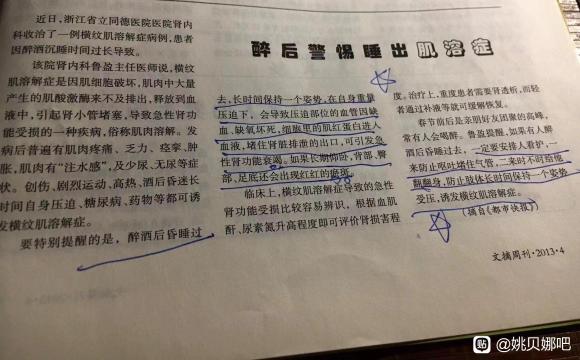 醉后警惕睡出肌溶症
近日,浙江省立同德医院医院肾内
科收治了一例横纹肌溶解症病例,患者
因醉酒沉睡时间过长导致。
该院肾内科鲁盈主任医师说,横纹
肌溶解症是因肌细胞破坏,肌肉中大量
产生的肌酸激酶来不及排出,释放到血
液中,引起肾小管堵塞,导致急性肾功
能受损的一种疾病,俗称肌肉溶解。发
病后普遍有肌肉疼痛、乏力、痉挛、肿
胀,肌肉有“注水感”,及少尿、无尿等症
状。创伤、剧烈运动、高热、酒后昏迷长
时间自身压迫、糖尿病、药物等都可诱
发横纹肌溶解症。
要特别提醒的是,醉酒后昏睡过
去,长时间保持一个姿势,在自身重量
压迫下,会导致压迫部位的血管因缺
血、缺氧坏死,细胞里的肌红蛋白进入
血液,堵住肾脏排泄的出口,可引发急
性肾功能衰竭。如果长期仰卧,背部、臀
部、足底还会出现红红的瘀斑。
临床上,横纹肌溶解症导致的急性
肾功能受损比较容易辨识,根据血肌
酐、尿素氮升高程度即可评价肾损害程
度。治疗上,重度患者需要肾透析,而轻
者通过补液等就可缓解恢复。
春节前后是亲朋好友团聚的高峰,
常有人会喝醉。鲁盈提醒,如果有人醉
酒后昏睡过去,一定要安排人看护,一
来防止呕吐堵住气管,二来时不时给他
翻翻身,防止肢体长时间保持一个姿势
受压,诱发横纹肌溶解症。
(摘自《都市快报》)
文摘周刊·2013·4
贴 @姚贝娜吧